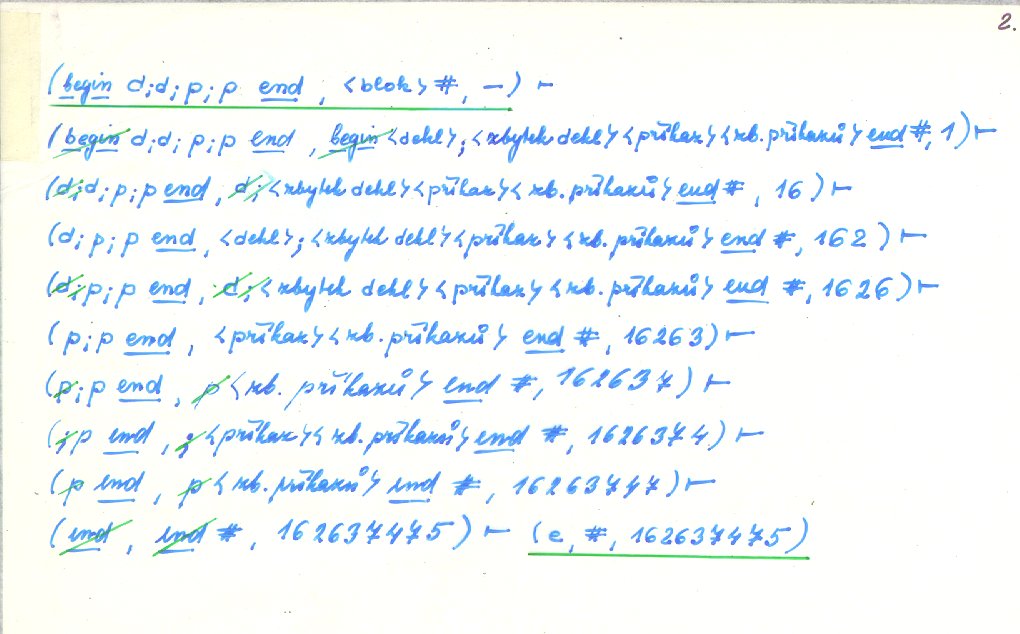 2.
(begin d;d;p;p end, <blok>#, —) ⊢
(begin d;d;p;p end, begin<dekl>;<zbytek dekl><příkaz><zb.příkazů>end#,1)⊢
(d;d;p;p end, d;<zbytek dekl><příkaz><zb.příkazů>end#, 16)⊢
(d;p;p end, <dekl>;<zbytek dekl><příkaz><zb.příkazů>end #, 162)⊢
(d;p;p end, d;<zbytek dekl><příkaz><zb.příkazů>end #, 1626)⊢
(p;p end, <příkaz><zb.příkazů>end #, 16263)⊢
(p;p end, p<zb. příkazů>end #, 162637)⊢
(;p end, ;<příkaz><zb.příkazů>end #, 1626374)⊢
(p end, p<zb.příkazů>end #, 16263747)⊢
(end, end#, 162637475)⊢ (e, #, 162637475)